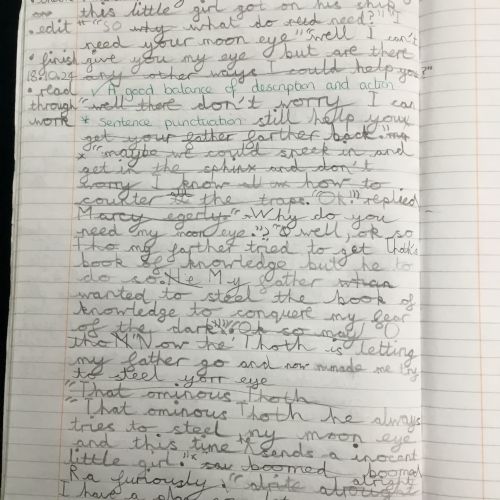 this little girl got on his ship
• edit "so why what do need need?" "I
need your moon eye" "well I can't
• finish give you my eye but are there
18.10.24 any other ways I could help you?"
• read ✓ A good balance of description and action
through "well there don't worry I can
work * Sentence punctuation still help you
get your father farther back. my
x "maybe we could sneek in and
get in the sphinx and don't
worry I know how to
counter the traps. "Ok!" replied
Marcy egerly. "Why do you
need my moon eye." "well, ok so
Tho my farther tried to get Thoth's
book of knowledge but he to
do so. He My father when
wanted to steel the book of
knowledge to conquere my fear
of the dark." "Ok so may I O
tho M'Now the Thoth is letting
my father go and now made me try
to steel your eye
"That ominous Thoth
"That ominous Thoth he always
tries to steel my moon eye
and this time sends a inocent
little girl." boomed boomed
Ra furiously.
I have a